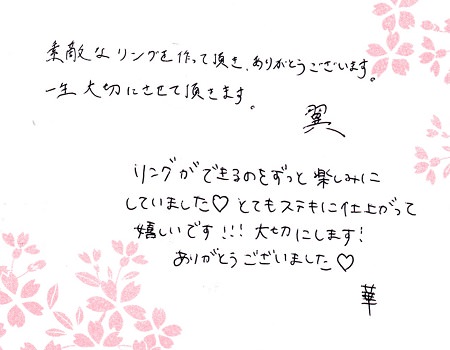 素敵なリングを作って頂き、ありがとうございます。
一生大切にさせて頂きます。
翼
リングができるのをずっと楽しみに
していました♡とてもステキに仕上がって
嬉しいです!!!大切にします!
ありがとうございました♡
華